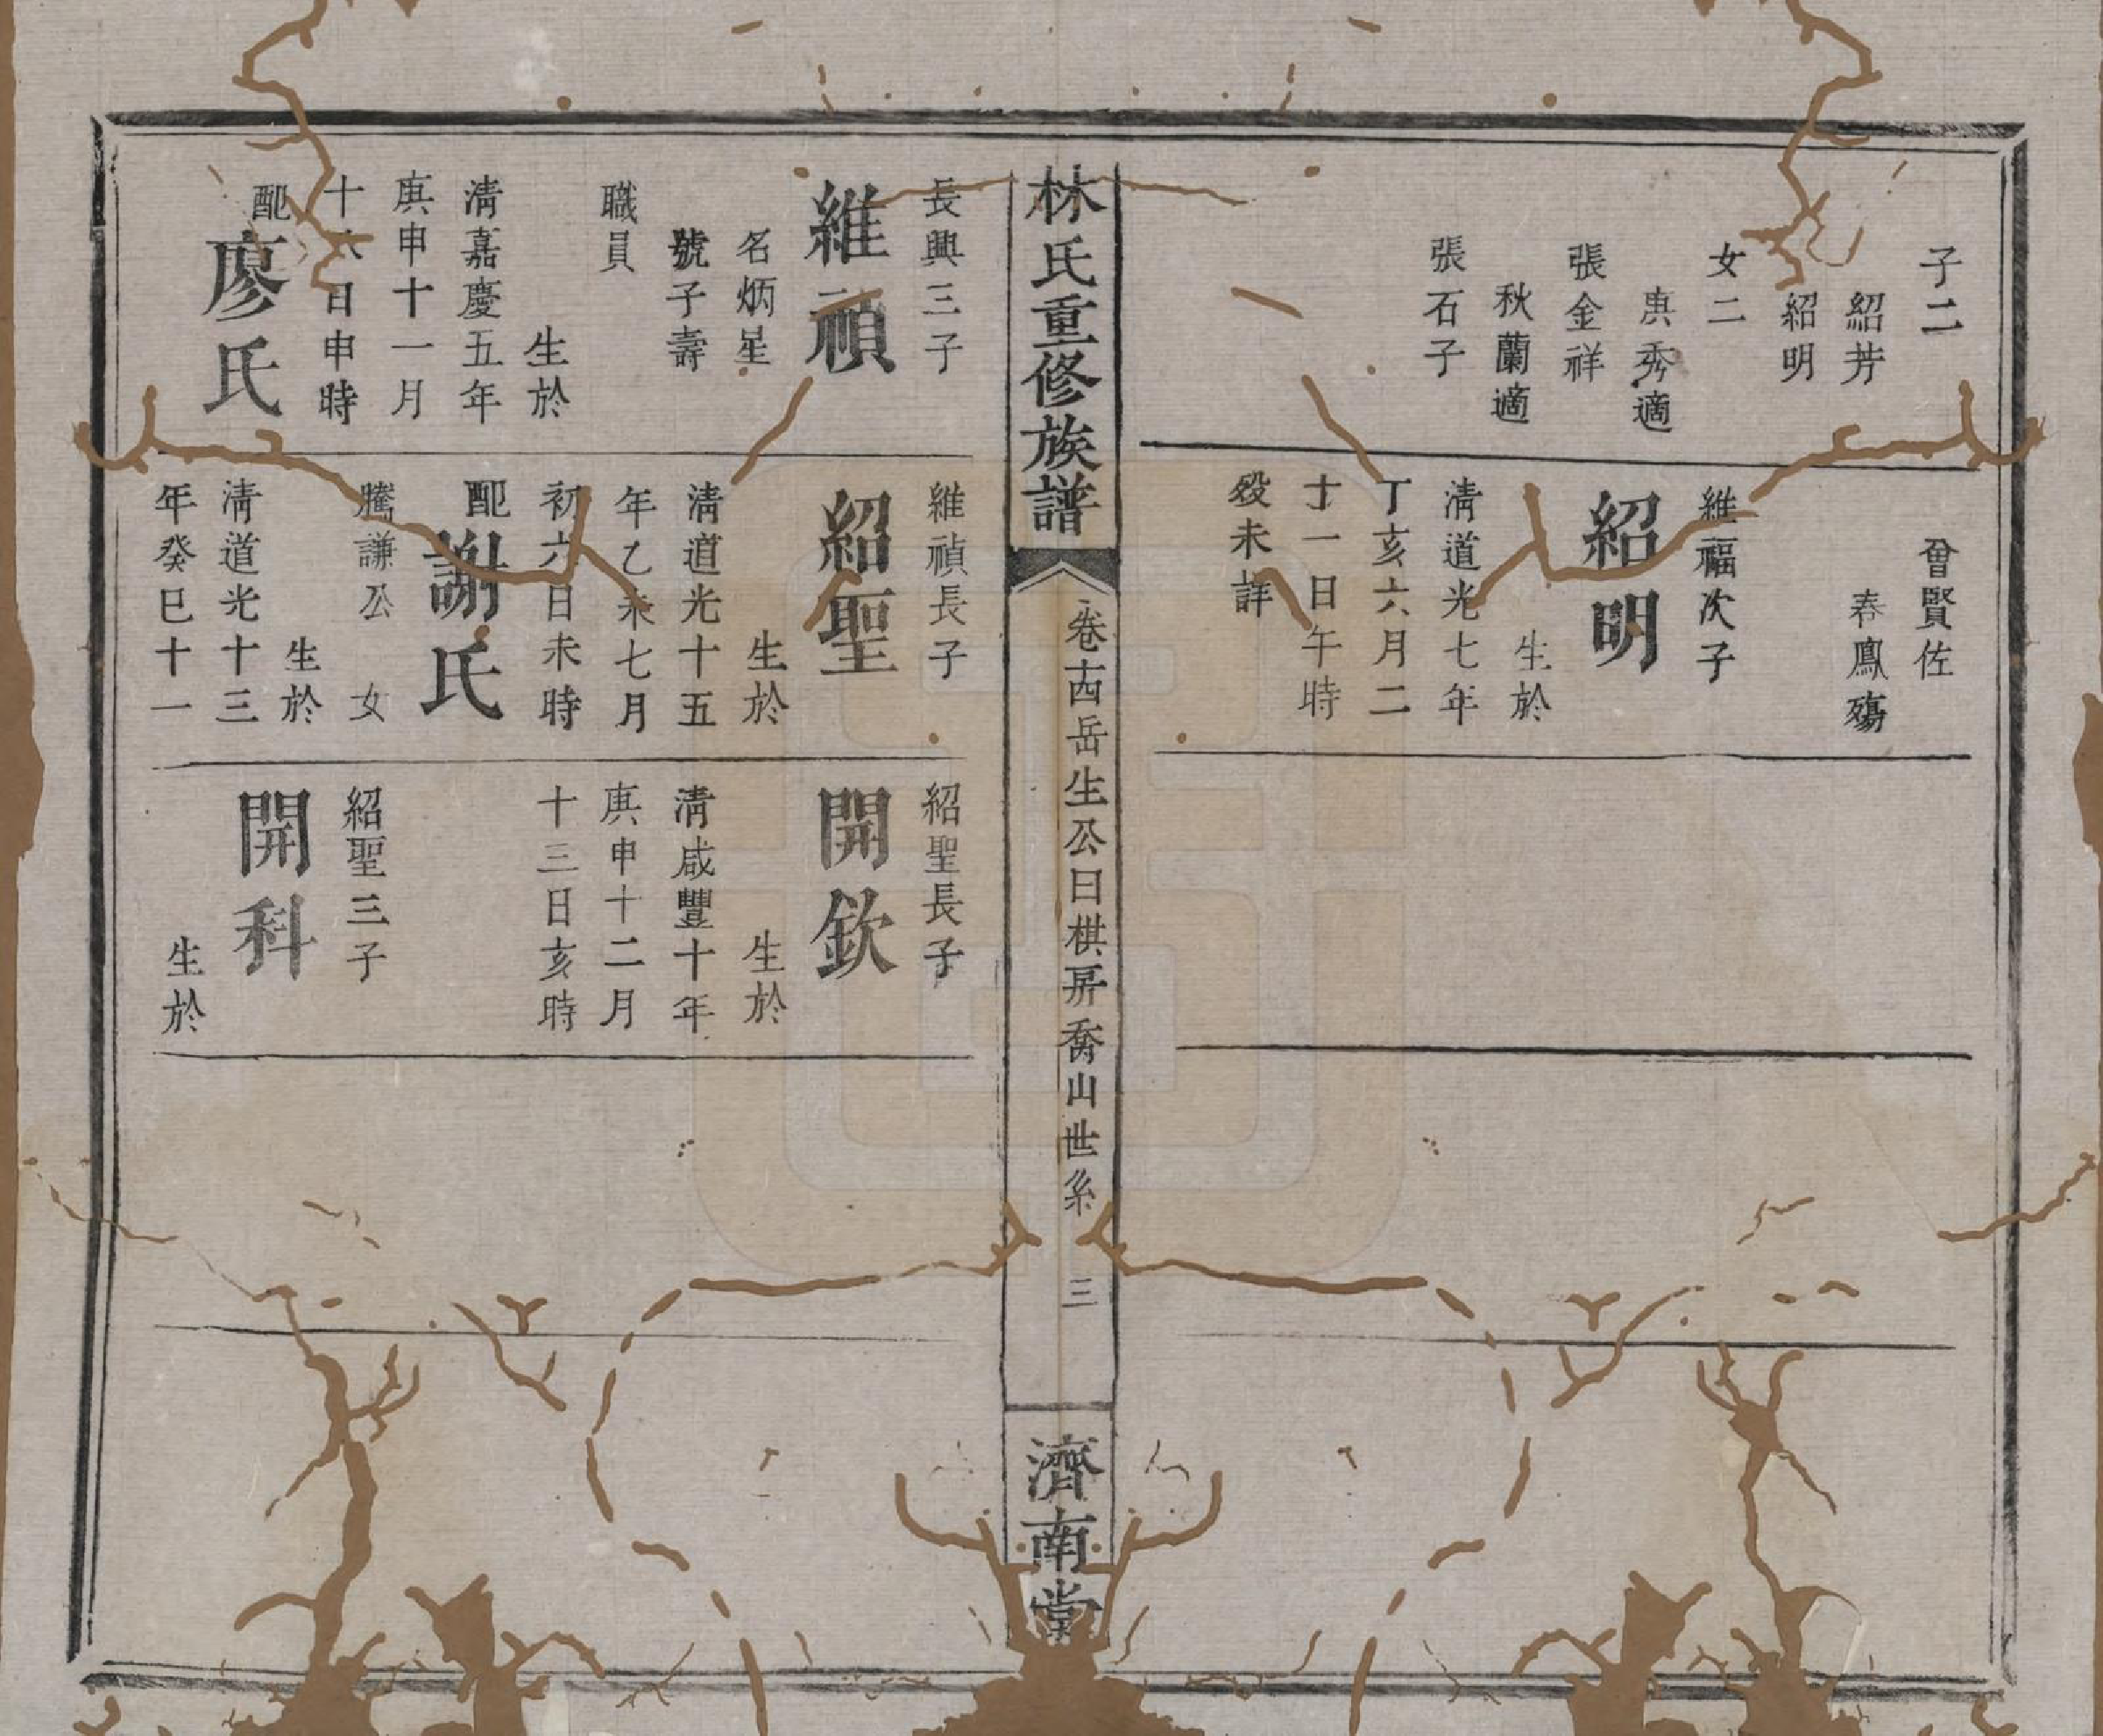 子二
紹芳
紹明
女二
庚秀適
張金祥
秋蘭適
張石子
曾賢佐
春鳳殤
維福次子
紹明
生於
淸道光七年
丁亥六月二
十一日午時
歿未詳
林氏重修族譜
卷十四岳生公曰棋房喬山世系
三
濟南堂
長興三子
維禎
名炳星
號子壽
職員
生於
淸嘉慶五年
庚申十一月
十六日申時
配廖氏
維禎長子
紹聖
生於
淸道光十五
年乙未七月
初六日未時
配謝氏
騰謙公 女
生於
淸道光十三
年癸巳十一
紹聖長子
開欽
生於
淸咸豐十年
庚申十二月
十三日亥時
紹聖三子
開科
生於